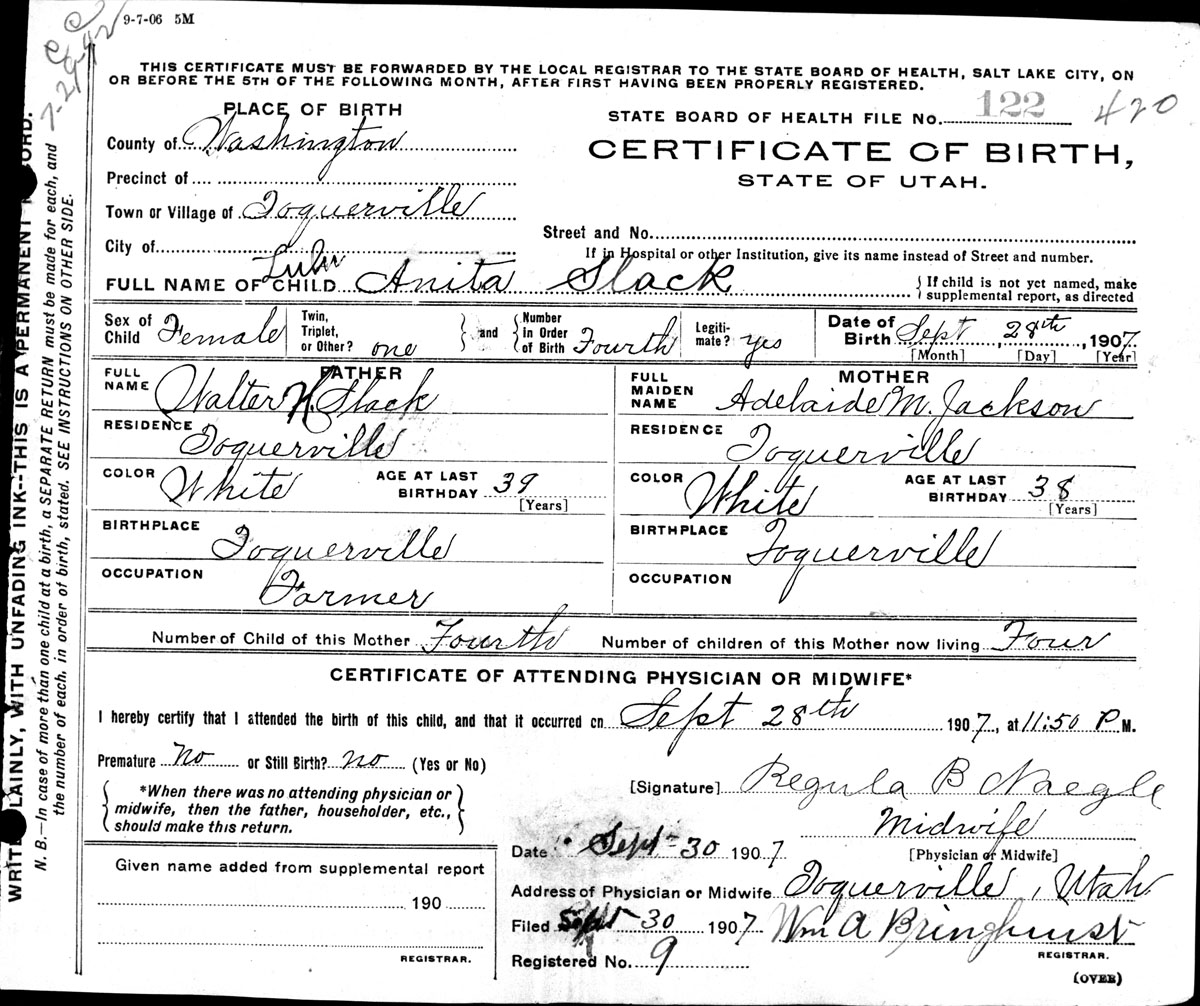 9-7-06 5M
7-29-42
THIS CERTIFICATE MUST BE FORWARDED BY THE LOCAL REGISTRAR TO THE STATE BOARD OF HEALTH, SALT LAKE CITY, ON
OR BEFORE THE 5TH OF THE FOLLOWING MONTH, AFTER FIRST HAVING BEEN PROPERLY REGISTERED.
PLACE OF BIRTH
STATE BOARD OF HEALTH FILE No. 122 420
County of Washington
CERTIFICATE OF BIRTH,
Precinct of
STATE OF UTAH.
Town or Village of Toquerville
Street and No.
City of
If in Hospital or other Institution, give its name instead of Street and number.
Lulu
FULL NAME OF CHILD Anita Slack
{ If child is not yet named, make
supplemental report, as directed
Sex of Child Female
Twin, Triplet, or Other? one
and
Number in Order of Birth Fourth
Legiti-mate? yes
Date of Birth Sept 28th, 1907
[Month] [Day] [Year]
FATHER
FULL NAME Walter H. Slack
RESIDENCE Toquerville
COLOR White AGE AT LAST BIRTHDAY 39
[Years]
BIRTHPLACE Toquerville
OCCUPATION Farmer
MOTHER
FULL MAIDEN NAME Adelaide M. Jackson
RESIDENCE Toquerville
COLOR White AGE AT LAST BIRTHDAY 38
[Years]
BIRTHPLACE Toquerville
OCCUPATION
Number of Child of this Mother Fourth Number of children of this Mother now living Four
CERTIFICATE OF ATTENDING PHYSICIAN OR MIDWIFE*
I hereby certify that I attended the birth of this child, and that it occurred on Sept 28th 1907, at 11:50 P M.
Premature no or Still Birth? no (Yes or No)
*When there was no attending physician or
midwife, then the father, householder, etc.,
should make this return.
[Signature] Regula B Naegle
Midwife
[Physician or Midwife]
Date Sept 30 1907
Given name added from supplemental report
190
REGISTRAR.
Address of Physician or Midwife Toquerville, Utah
Filed Sept 30 1907 Wm A Bringhurst
REGISTRAR.
Registered No. 9
(OVER)
WRITE PLAINLY, WITH UNFADING INK--THIS IS A PERMANENT RECORD.
N. B.—In case of more than one child at a birth, a SEPARATE RETURN must be made for each, and
the number of each, in order of birth, stated. SEE INSTRUCTIONS ON OTHER SIDE.